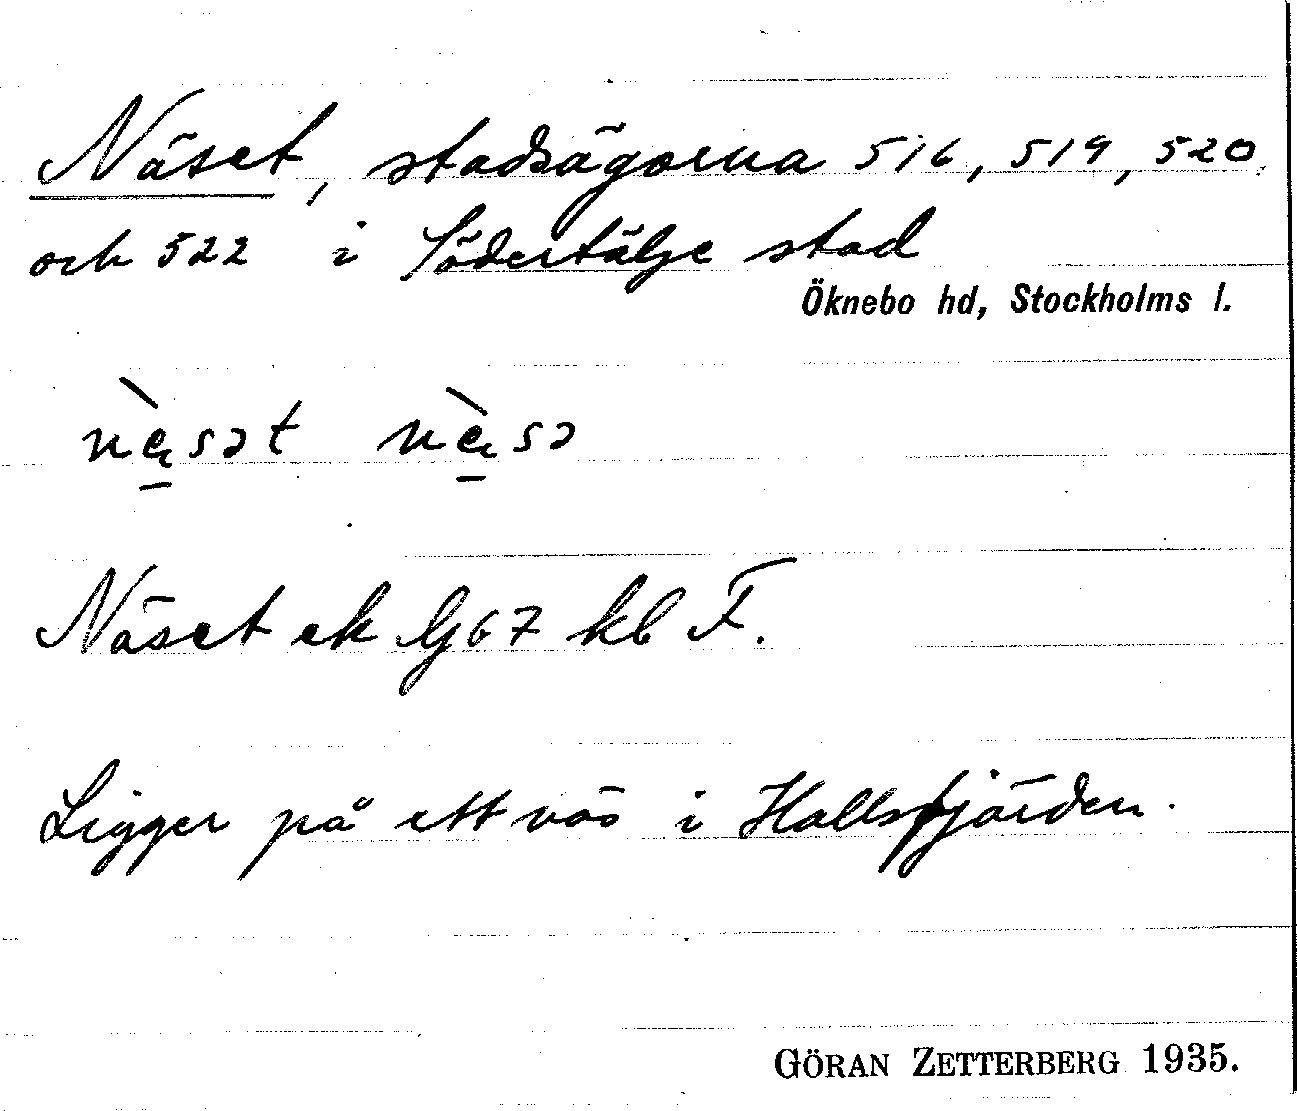 Näset, stadsägorna 516, 519, 520
och 522 i Södertälje stad
Öknebo hd, Stockholms l.
nä̀sət nä̀sə
Näset ek G67 kbl F.
Ligger på ett näs i Hallsfjärden.
GÖRAN ZETTERBERG 1935.